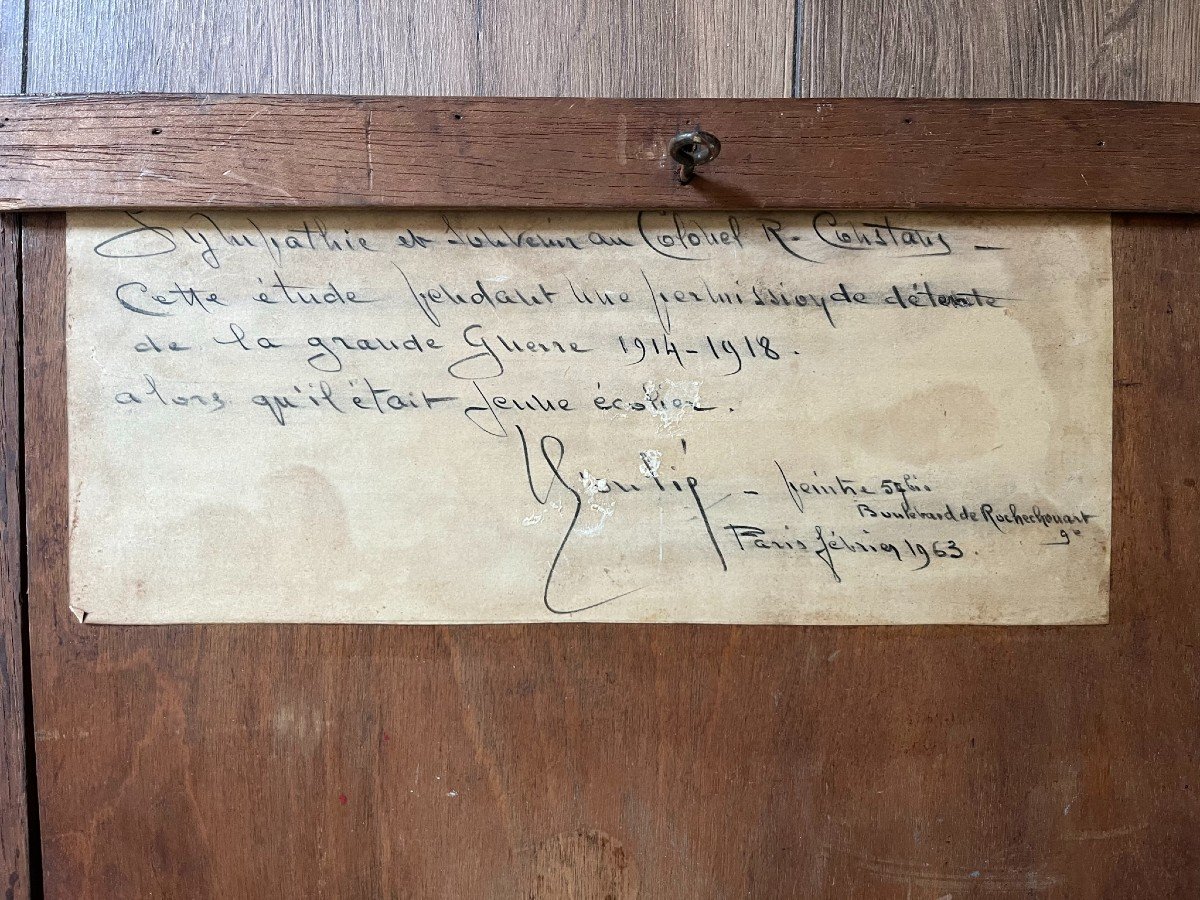 Sympathie et Souvenir au Colonel R. Constans –
Cette étude pendant une permission de détente
de la grande Guerre 1914-1918.
alors qu'il était jeune écolier.
– peintre 57 bis
Boulevard de Rochechouart
9e
Paris février 1963.